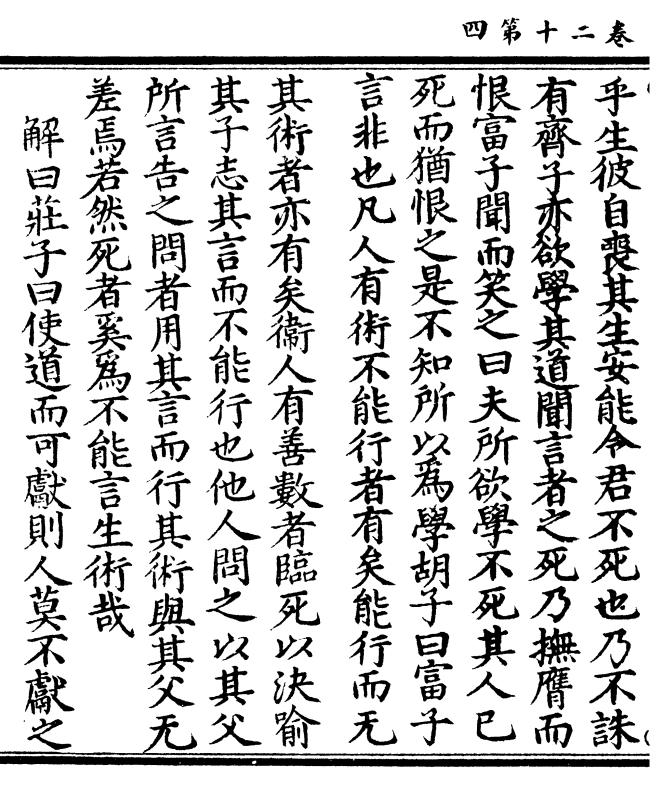 卷二十第四
乎生彼自喪其生安能令君不死也乃不誅
有齊子亦欲學其道聞言者之死乃撫膺而
恨富子聞而笑之曰夫所欲學不死其人已
死而猶恨之是不知所以爲學胡子曰富子
言非也凡人有術不能行者有矣能行而无
其術者亦有矣衞人有善數者臨死以決喻
其子志其言而不能行也他人問之以其父
所言告之問者用其言而行其術與其父无
差焉若然死者奚爲不能言生術哉
解曰莊子曰使道而可獻則人莫不獻之